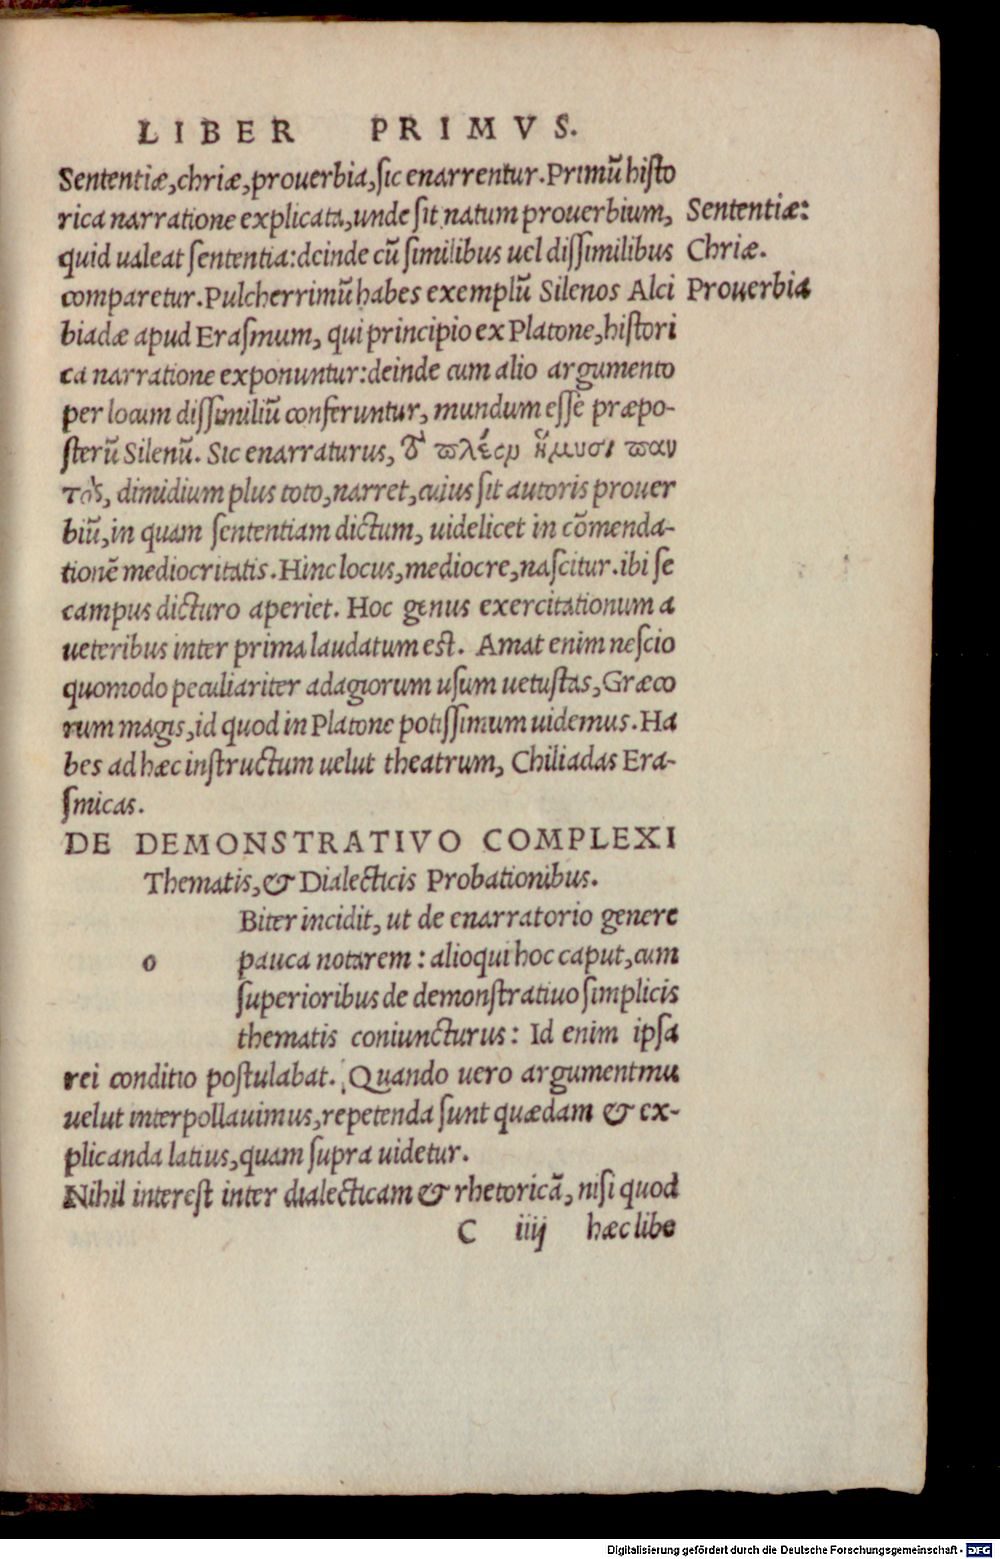 LIBER PRIMVS.
Sententiæ, chriæ, prouerbia, sic enarrentur. Primũ histo
rica narratione explicata, unde sit natum prouerbium,
Sententiæ:
quid ualeat sententia: deinde cũ similibus uel dissimilibus
Chriæ.
comparetur. Pulcherrimũ habes exemplũ Silenos Alci
Prouerbia
biadæ apud Erasmum, qui principio ex Platone, histori
ca narratione exponuntur: deinde cum alio argumento
per locum dissimiliũ conferuntur, mundum esse præpo-
sterũ Silenũ. Sic enarraturus, ϖλέερ ἥμυσι ϖαν
τὸς, dimidium plus toto, narret, cuius sit autoris prouer
biũ, in quam sententiam dictum, uidelicet in cõmenda-
tionẽ mediocritatis. Hinc locus, mediocre, nascitur. ibi se
campus dicturo aperiet. Hoc genus exercitationum a
ueteribus inter prima laudatum est. Amat enim nescio
quomodo peculiariter adagiorum usum uetustas, Græco
rum magis, id quod in Platone potissimum uidemus. Ha
bes ad hæc instructum uelut theatrum, Chiliadas Era-
smicas.
DE DEMONSTRATIVO COMPLEXI
Thematis, & Dialecticis Probationibus.
Biter incidit, ut de enarratorio genere
o pauca notarem: alioqui hoc caput, cum
superioribus de demonstratiuo simplicis
thematis coniuncturus: Id enim ipsa
rei conditio postulabat. Quando uero argumentmu
uelut interpollauimus, repetenda sunt quædam & ex-
plicanda latius, quam supra uidetur.
Nihil interest inter dialecticam & rhetoricã, nisi quod
C iiij hæc libe
Digitalisierung gefördert durch die Deutsche Forschungsgemeinschaft - DFG